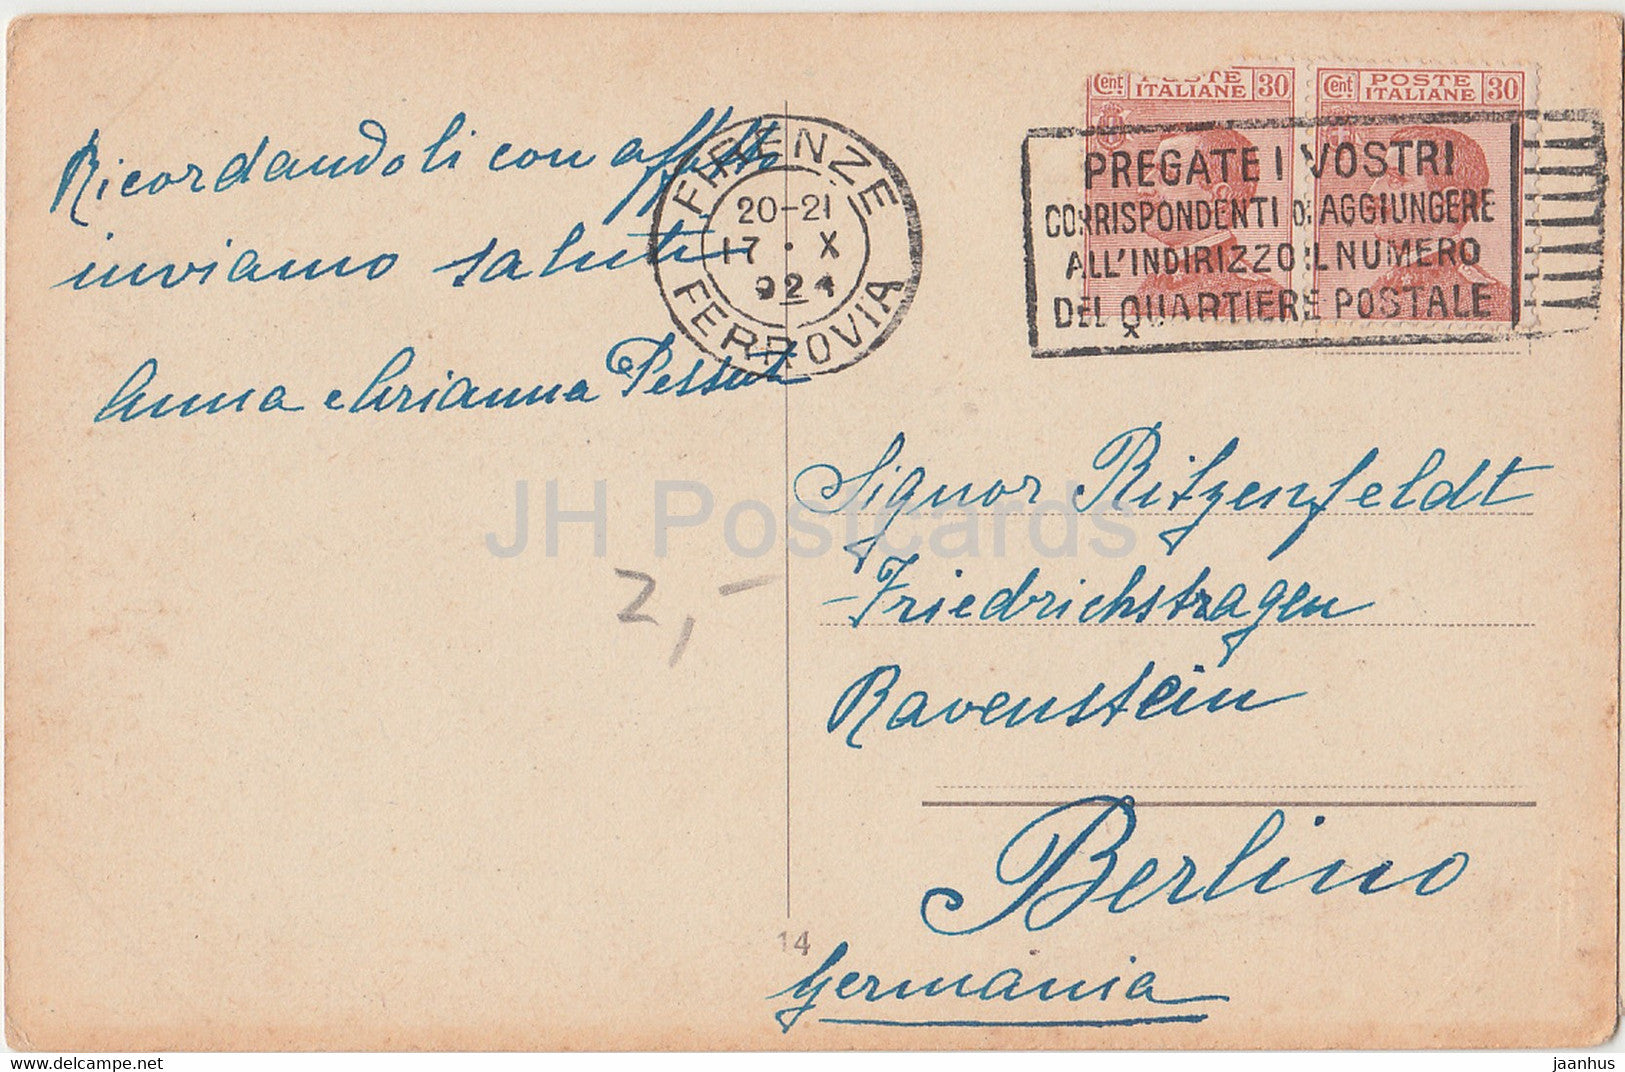 Ricordandoli con affetto
inviamo saluti
Anna e Arianna
FIRENZE
20-21
17 · X
924
FERROVIA
Cent. POSTE ITALIANE 30
Cent. POSTE ITALIANE 30
PREGATE I VOSTRI
CORRISPONDENTI DI AGGIUNGERE
ALL'INDIRIZZO IL NUMERO
DEL QUARTIERE POSTALE
Signor Ritzenfeldt
Friedrichstragen
Ravenstein
Berlino
Germania
2,-
14
JH Postcards
www.delcampe.net
jaanhus